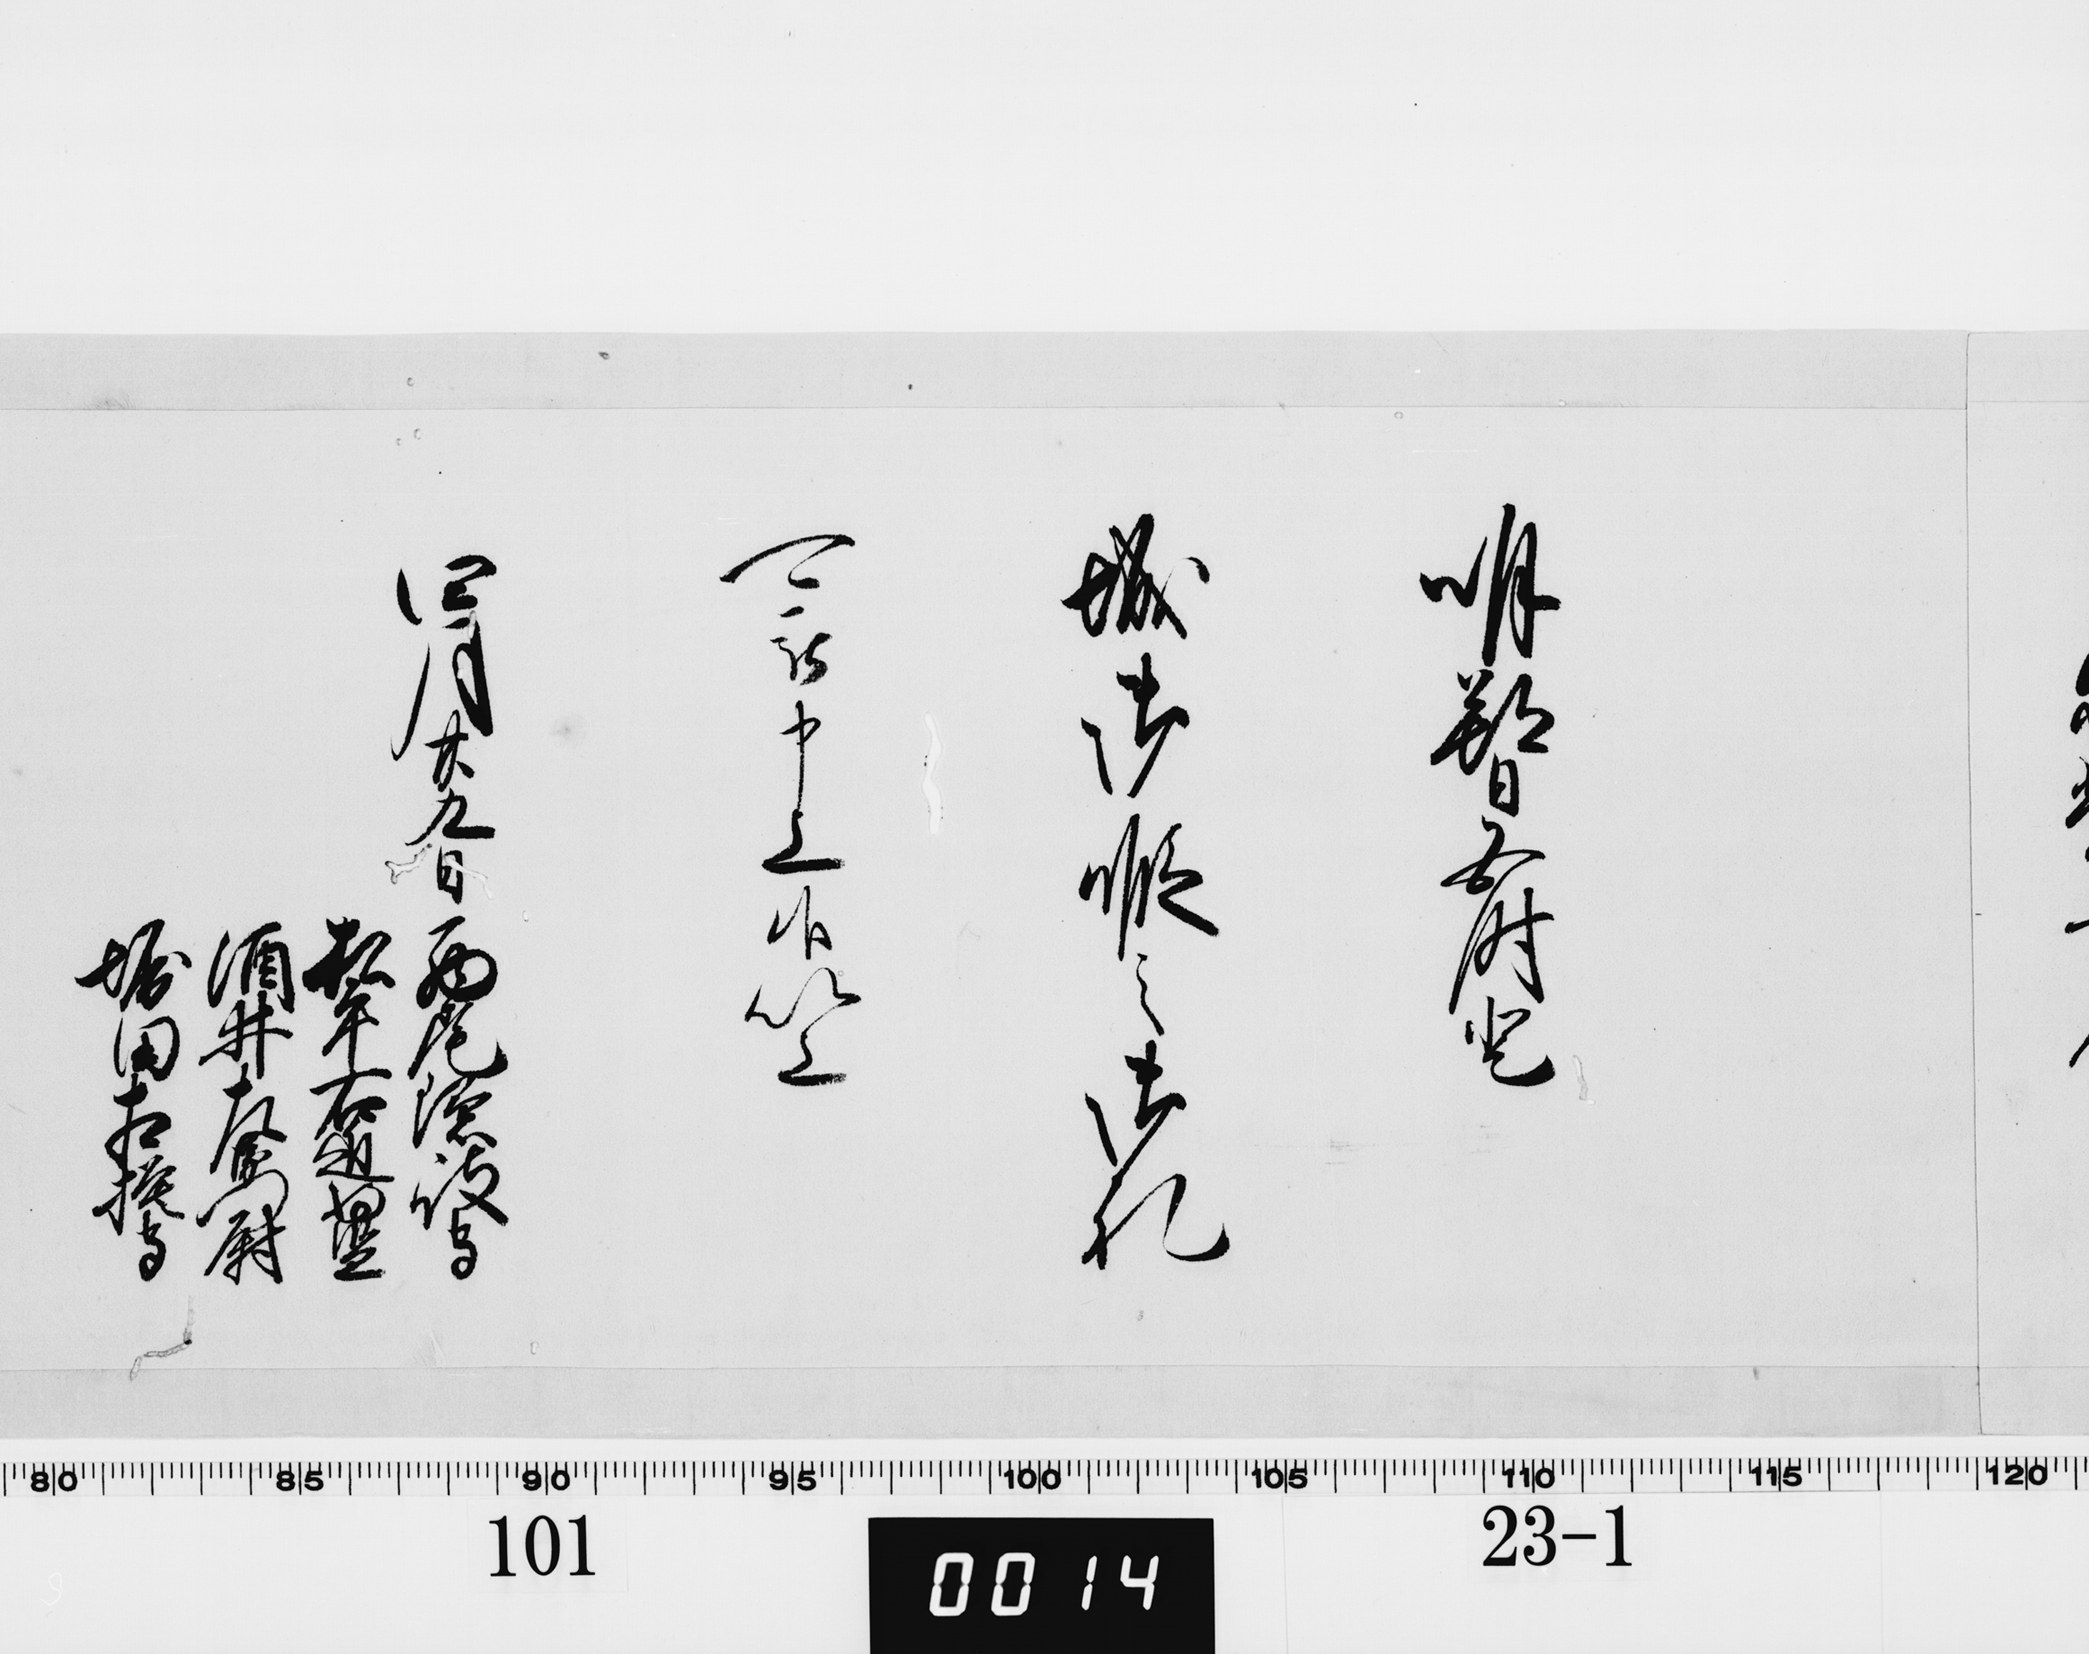 明朔日五時登
城御暇之御礼
可被申上候以上
四月廿九日
西尾隠岐守
松平右近将監
酒井左衛門尉
堀田相模守
80 85 90 95 100 105 110 115 120
101
0014
23-1